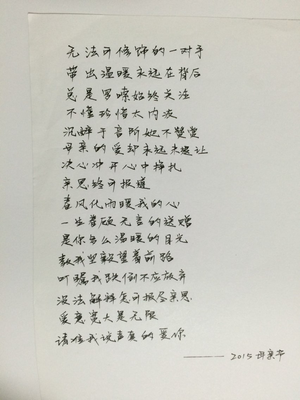 无法可修饰的一对手
带出温暖永远在背后
总是罗嗦始终关注
不懂珍惜太内疚
沉醉于音阶她不赞赏
母亲的爱却永远未退让
决心冲开心中挣扎
亲恩终可报答
春风化雨暖我的心
一生眷顾无言的送赠
是你多么温暖的目光
教我坚毅望着前路
叮嘱我跌倒不应放弃
没法解释怎可报尽亲恩
爱意宽大是无限
请准我说声真的爱你
——2015 母亲节